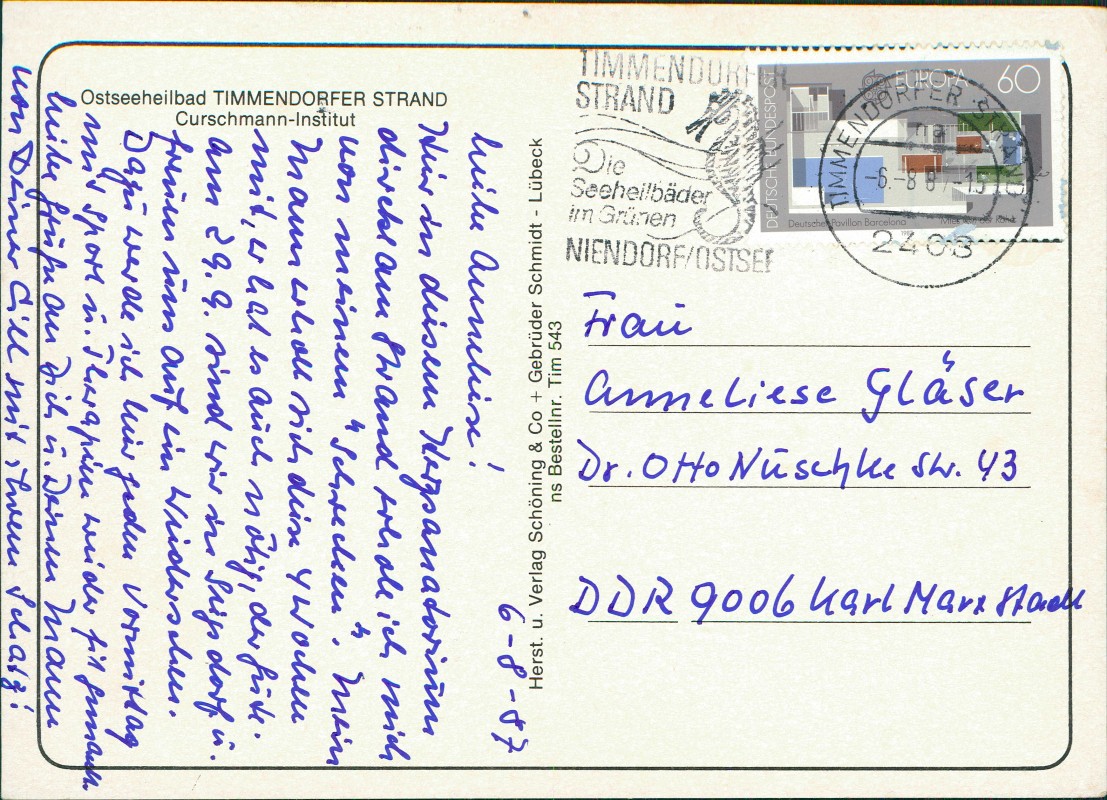 Ostseeheilbad TIMMENDORFER STRAND
Curschmann-Institut
6-8-87
Liebe Anneliese!
Hier in diesem Herzsanatorium
direkt am Strand erhole ich mich
von meinem "Schrecken". Mein
Mann erholt sich diese 4 Wochen
mit, er hat es auch nötig, der Gute.
Am 29.9. sind wir in Siegsdorf u.
freuen uns auf ein Wiedersehen.
Dazu werde ich hier jeden Vormittag
mit Sport u. Therapien wieder fit gemacht.
Liebe Grüße an Dich u. Deinen Mann
von Deiner Cill mit ihrem Schatz!
Herst. u. Verlag Schöning & Co + Gebrüder Schmidt - Lübeck
ns Bestellnr. Tim 543
TIMMENDORFER
STRAND
Die
Seeheilbäder
im Grünen
NIENDORF/OSTSEE
DEUTSCHE BUNDESPOST
EUROPA 60
Deutscher Pavillon Barcelona
TIMMENDORFER STRAND
na
-6.-8.87
2408
Frau
Anneliese Gläser
Dr. Otto Nuschke Str. 43
DDR 9006 Karl Marx Stadt